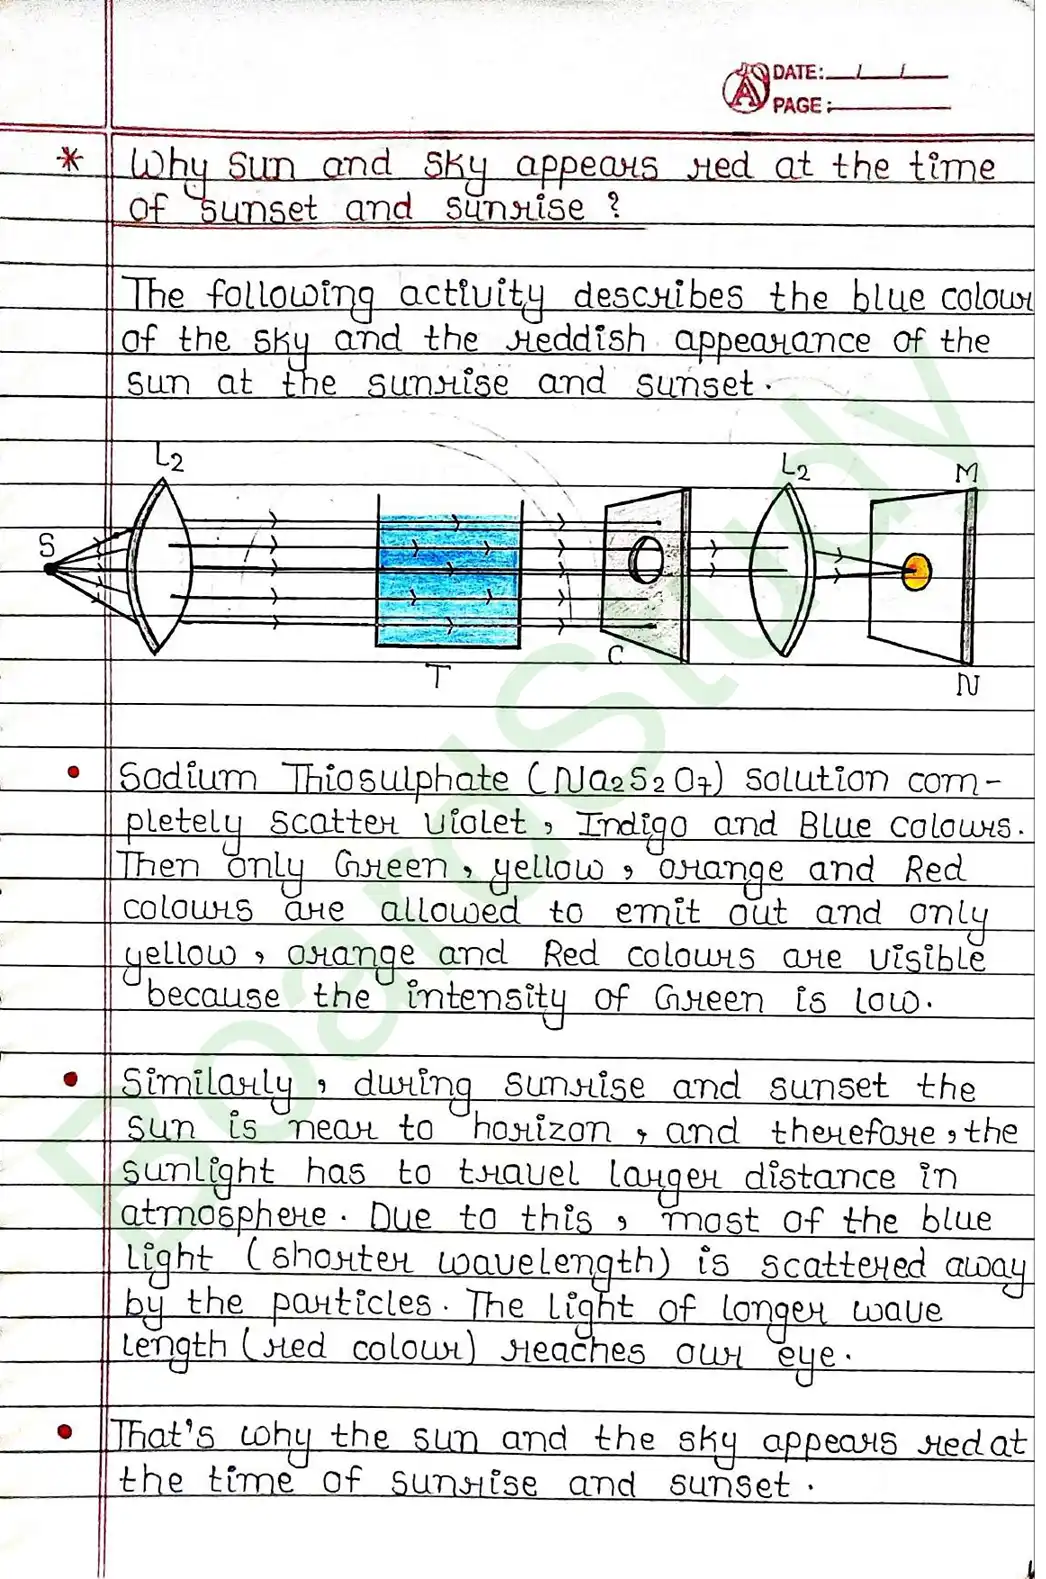 DATE: / /
PAGE:
* Why sun and sky appears red at the time
of sunset and sunrise ?
The following activity describes the blue colour
of the sky and the reddish appearance of the
sun at the sunrise and sunset.
L2
L2
M
S
C
T
N
• Sodium Thiosulphate (Na2S2O7) solution com-
pletely scatter violet, Indigo and Blue colours.
Then only Green, yellow, orange and Red
colours are allowed to emit out and only
yellow, orange and Red colours are visible
because the intensity of Green is low.
• Similarly, during sunrise and sunset the
sun is near to horizon, and therefore, the
sunlight has to travel larger distance in
atmosphere. Due to this, most of the blue
light (shorter wavelength) is scattered away
by the particles. The light of longer wave
length (red colour) reaches our eye.
• That's why the sun and the sky appears red at
the time of sunrise and sunset.
BoardStudy